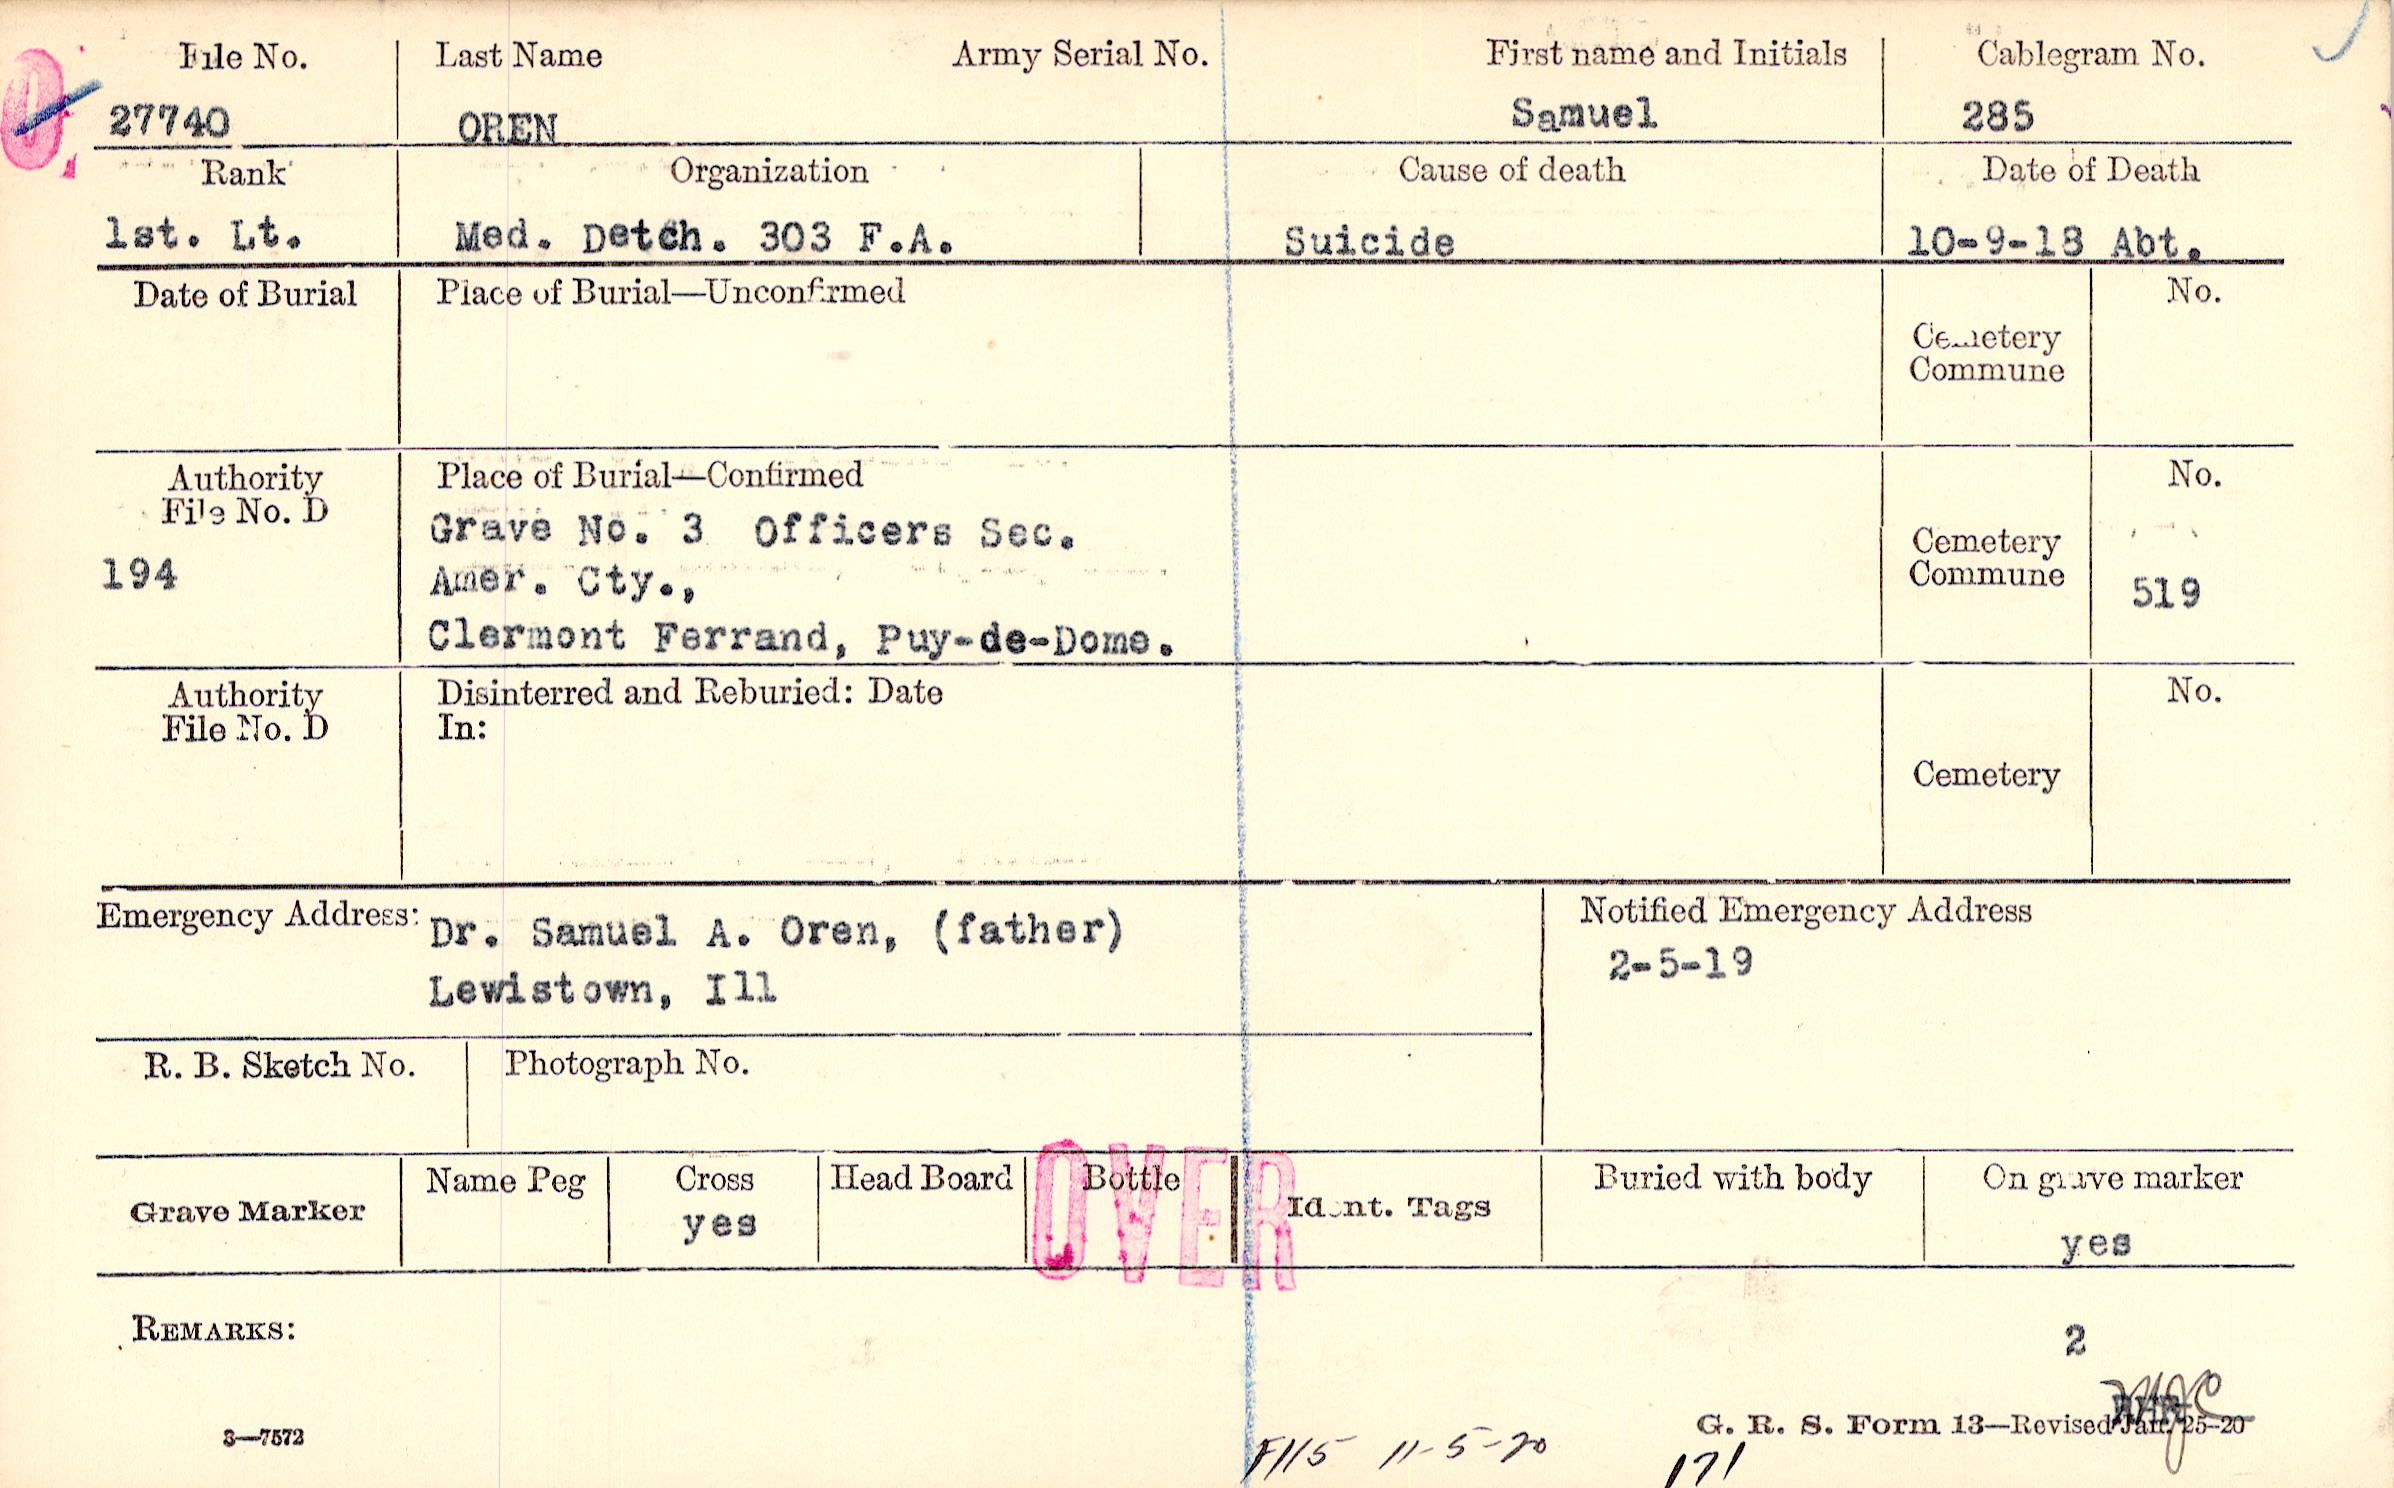 File No. Last Name Army Serial No. First name and Initials Cablegram No.
27740 OREN Samuel 285
Rank Organization Cause of death Date of Death
1st. Lt. Med. Detch. 303 F.A. Suicide 10-9-18 Abt.
Date of Burial Place of Burial—Unconfirmed No.
Cemetery
Commune
Authority Place of Burial—Confirmed No.
File No. D
Grave No. 3 Officers Sec.
Cemetery
194 Amer. Cty., Commune 519
Clermont Ferrand, Puy-de-Dome.
Authority Disinterred and Reburied: Date No.
File No. D In:
Cemetery
Emergency Address: Dr. Samuel A. Oren, (father) Notified Emergency Address
Lewistown, Ill 2-5-19
R. B. Sketch No. Photograph No.
OVER
Grave Marker Name Peg Cross Head Board Bottle Ident. Tags Buried with body On grave marker
yes yes
REMARKS:
2
3—7572 G. R. S. Form 13—Revised Jan. 25-20
F115 11-5-20 171